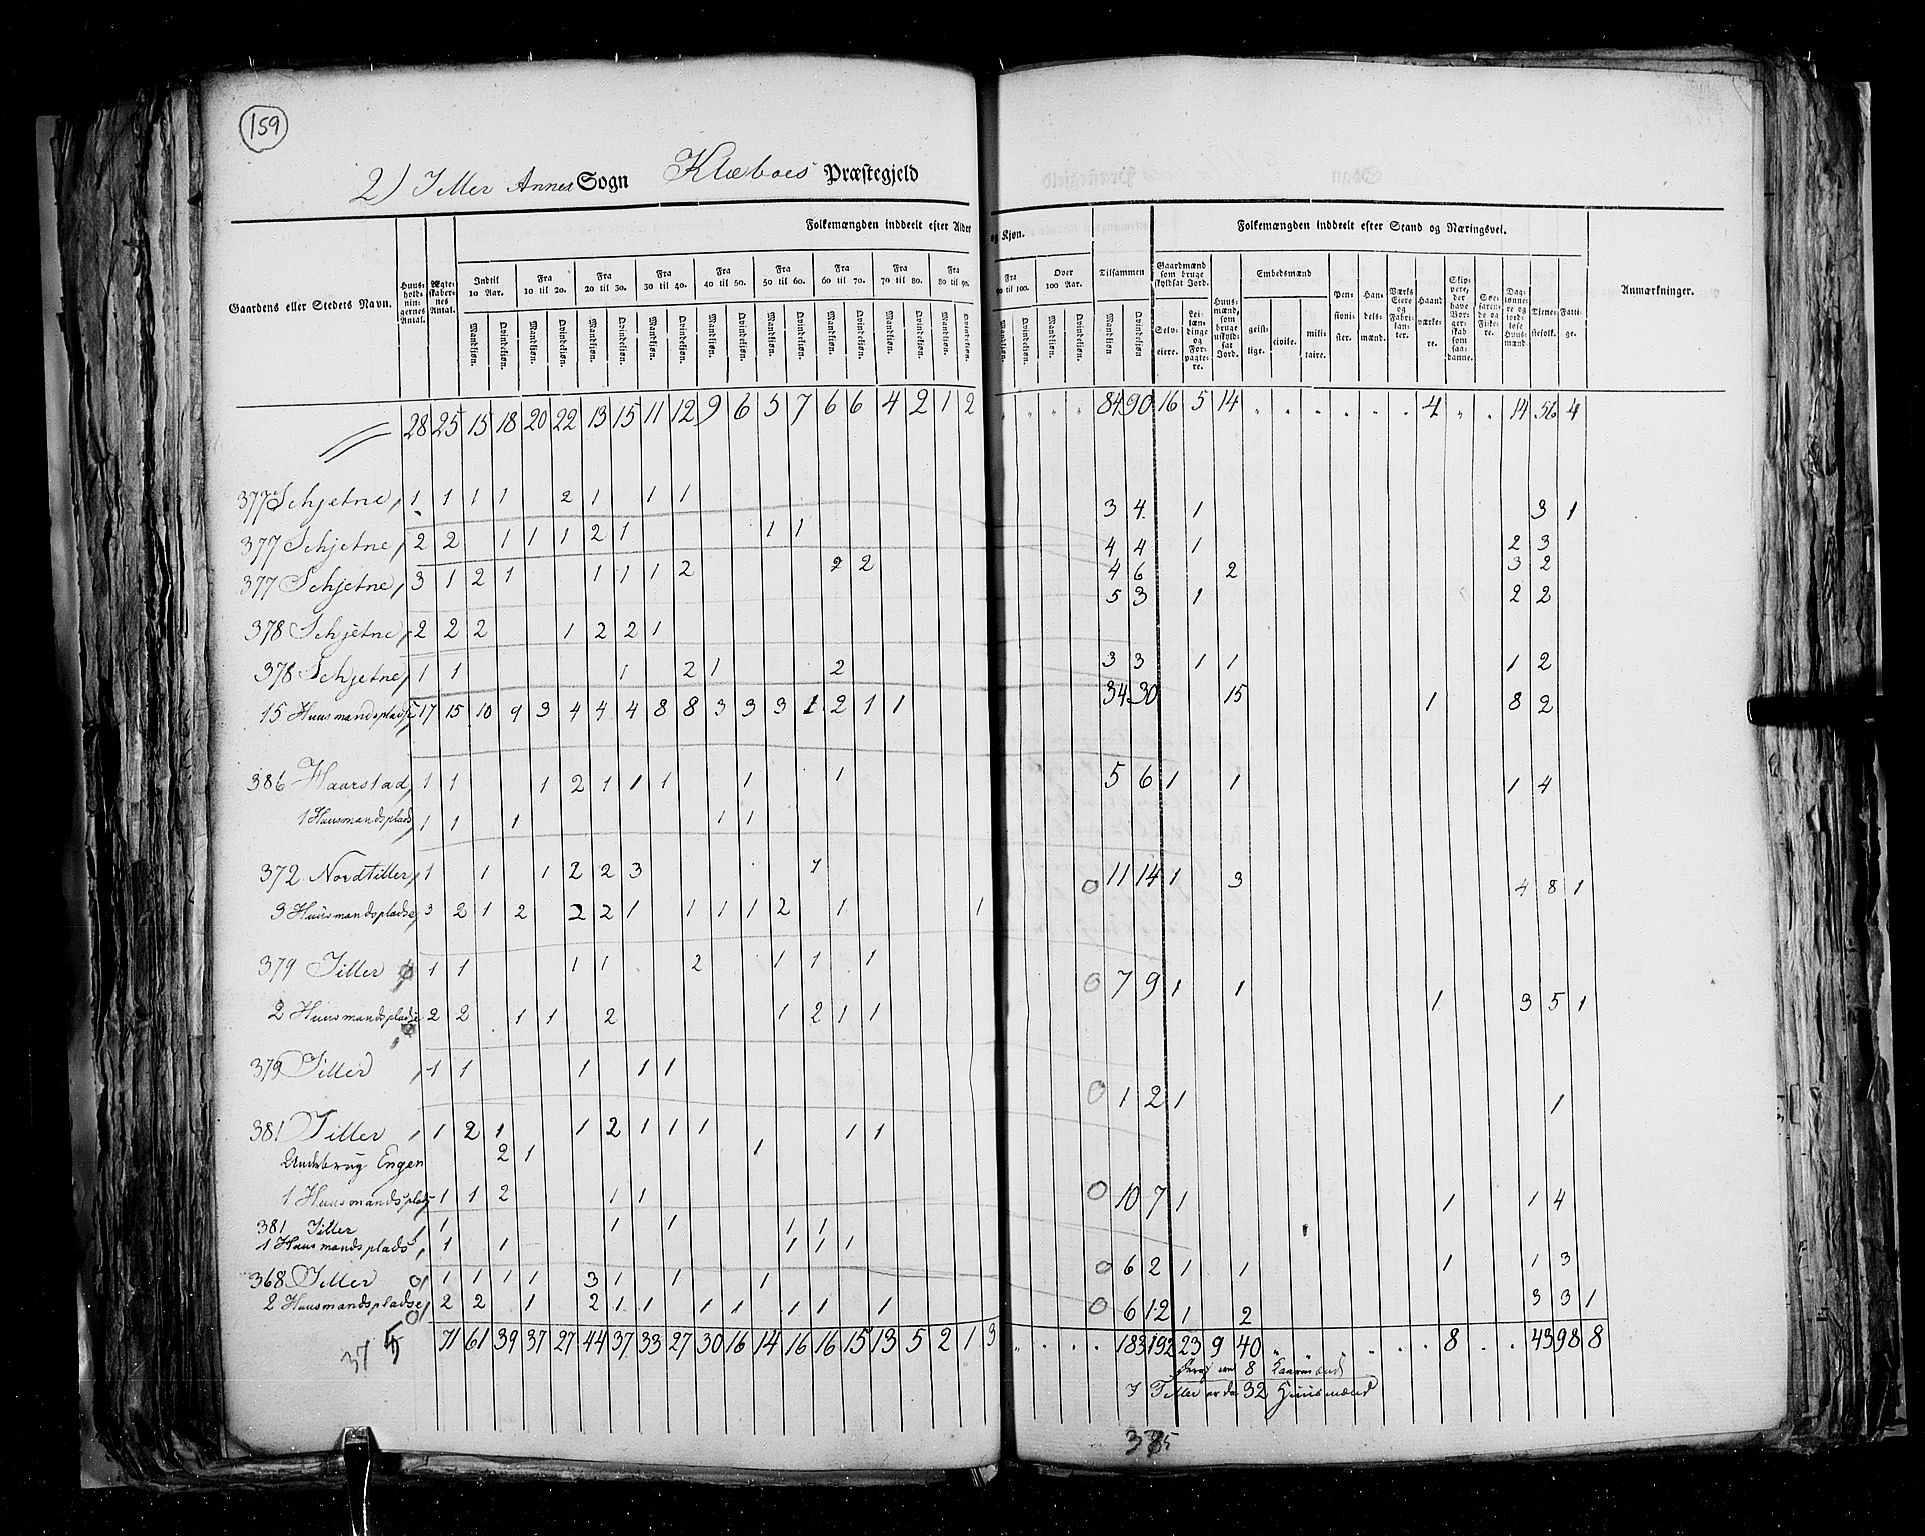 159
2) Tiller Annex Sogn Klæboes Præstegjeld
Folkemængden inddeelt efter Alder og Kjøn.
Folkemængden inddeelt efter Stand og Næringsvei.
Gaardens eller Stedets Navn.
Huusholdningernes Antal.
Ægteskabernes Antal.
Indtil 10 Aar. Fra 10 til 20. Fra 20 til 30. Fra 30 til 40. Fra 40 til 50. Fra 50 til 60. Fra 60 til 70. Fra 70 til 80. Fra 80 til 90. Fra 90 til 100. Over 100 Aar. Tilsammen
Mandkjøn. Qvindekjøn.
Gaardmænd som bruge skyldsat Jord.
Selveiere. Leilændinge og Forpagtere.
Huusmænd, som bruge uskyldsat Jord.
Embedsmænd
geistlige. civile. militaire.
Pensionister. Handelsmænd. Værks Eiere og Fabrikanter. Haandværkere.
Slippere, der have Borgerskab som saadanne.
Søefarende og Fiskere.
Daglønnere og inderste løse Huusmænd.
Tjenestefolk. Fattige.
Anmærkninger.
28 25 15 18 20 22 13 15 11 12 9 6 5 7 6 6 4 2 1 2 84 90 16 5 14 4 14 56 4
377 Schjetne, 1 1 1 1 2 1 1 1 3 4 1 3 1
377 Schjetne, 2 2 1 1 1 2 1 1 1 4 4 1 2 3
377 Schjetne, 3 1 2 1 1 1 1 2 2 2 4 6 2 3 2
378 Schjetne, 2 2 2 1 2 2 1 5 3 1 2 2
378 Schjetne, 1 1 1 2 1 2 3 3 1 1 1 2
15 Huusmandspladse 17 15 10 9 3 4 4 4 8 8 3 3 3 1 2 1 1 34 30 15 1 8 2
386 Haarstad, 1 1 1 2 1 1 1 1 1 5 6 1 1 1 4
1 Huusmandsplads, 1 1 1 1 1
372 Nordtiller, 1 1 1 2 2 3 1 0 11 14 1 3 4 8 1
3 Huusmandspladse, 3 2 1 2 2 2 1 1 1 1 2 1 1
379 Tiller 1 1 1 1 2 1 1 1 0 7 9 1 1 1 3 5 1
2 Huusmandspladse 2 2 1 1 2 1 2 1 1
379 Tiller, 1 1 1 1 1 0 1 2 1 1
381 Tiller, 1 2 1 1 2 1 1 1 1 1
Underbrug Engen 2 1 1
1 Huusmandsplads 1 1 2 1 1 0 10 7 1 1 1 4
381 Tiller, 1 1 1 1 1
1 Huusmandsplads, 1 1 1 1 1 0 6 2 1 1 1 1 3
368 Tiller 0, 1 1 1 1 3 1 1 1
2 Huusmandspladse, 0 2 2 1 2 1 1 1 1 1 1 1 0 6 12 1 2 3 3 1
71 61 39 37 27 44 37 33 27 30 16 14 16 16 15 13 5 2 1 3 183 192 23 9 40 8 43 98 8
8 Kaarmænd
I Tiller er da 32 Huusmænd
37 5
375